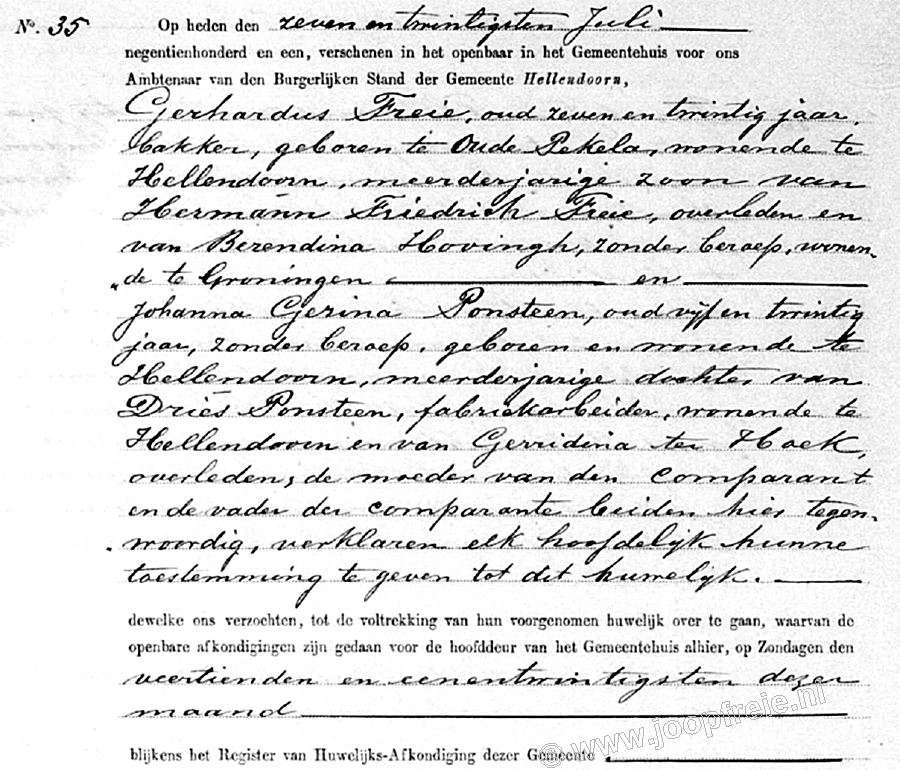 No. 35 Op heden den zeven en twintigsten Juli
negentienhonderd en een, verschenen in het openbaar in het Gemeentehuis voor ons
Ambtenaar van den Burgerlijken Stand der Gemeente Hellendoorn,
Gerhardus Freie, oud zeven en twintig jaar,
bakker, geboren te Oude Pekela, wonende te
Hellendoorn, meerderjarige zoon van
Hermann Friedrich Freie, overleden en
van Berendina Hovingh, zonder beroep, wonen-
„de te Groningen en
Johanna Gerina Ponsteen, oud vijf en twintig
jaar, zonder beroep, geboren en wonende te
Hellendoorn, meerderjarige dochter van
Driès Ponsteen, fabriekarbeider, wonende te
Hellendoorn en van Gerridina ter Hoek,
overleden; de moeder van den comparant
en de vader der comparante beiden hier tegen-
woordig, verklaren elk hoofdelijk hunne
toestemming te geven tot dit huwelijk.
dewelke ons verzochten, tot de voltrekking van hun voorgenomen huwelijk over te gaan, waarvan de
openbare afkondigingen zijn gedaan voor de hoofddeur van het Gemeentehuis alhier, op Zondagen den
veertienden en eenentwintigsten dezer
maand
blijkens het Register van Huwelijks-Afkondiging dezer Gemeente
© www.joopfreie.nl